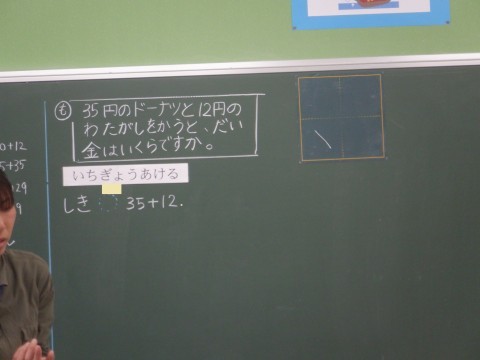 も 35円のドーナツと12円の
わたがしをかうと、だい
金はいくらですか。
いちぎょうあける
しき 35+12.
0+12
5+35
+29
9